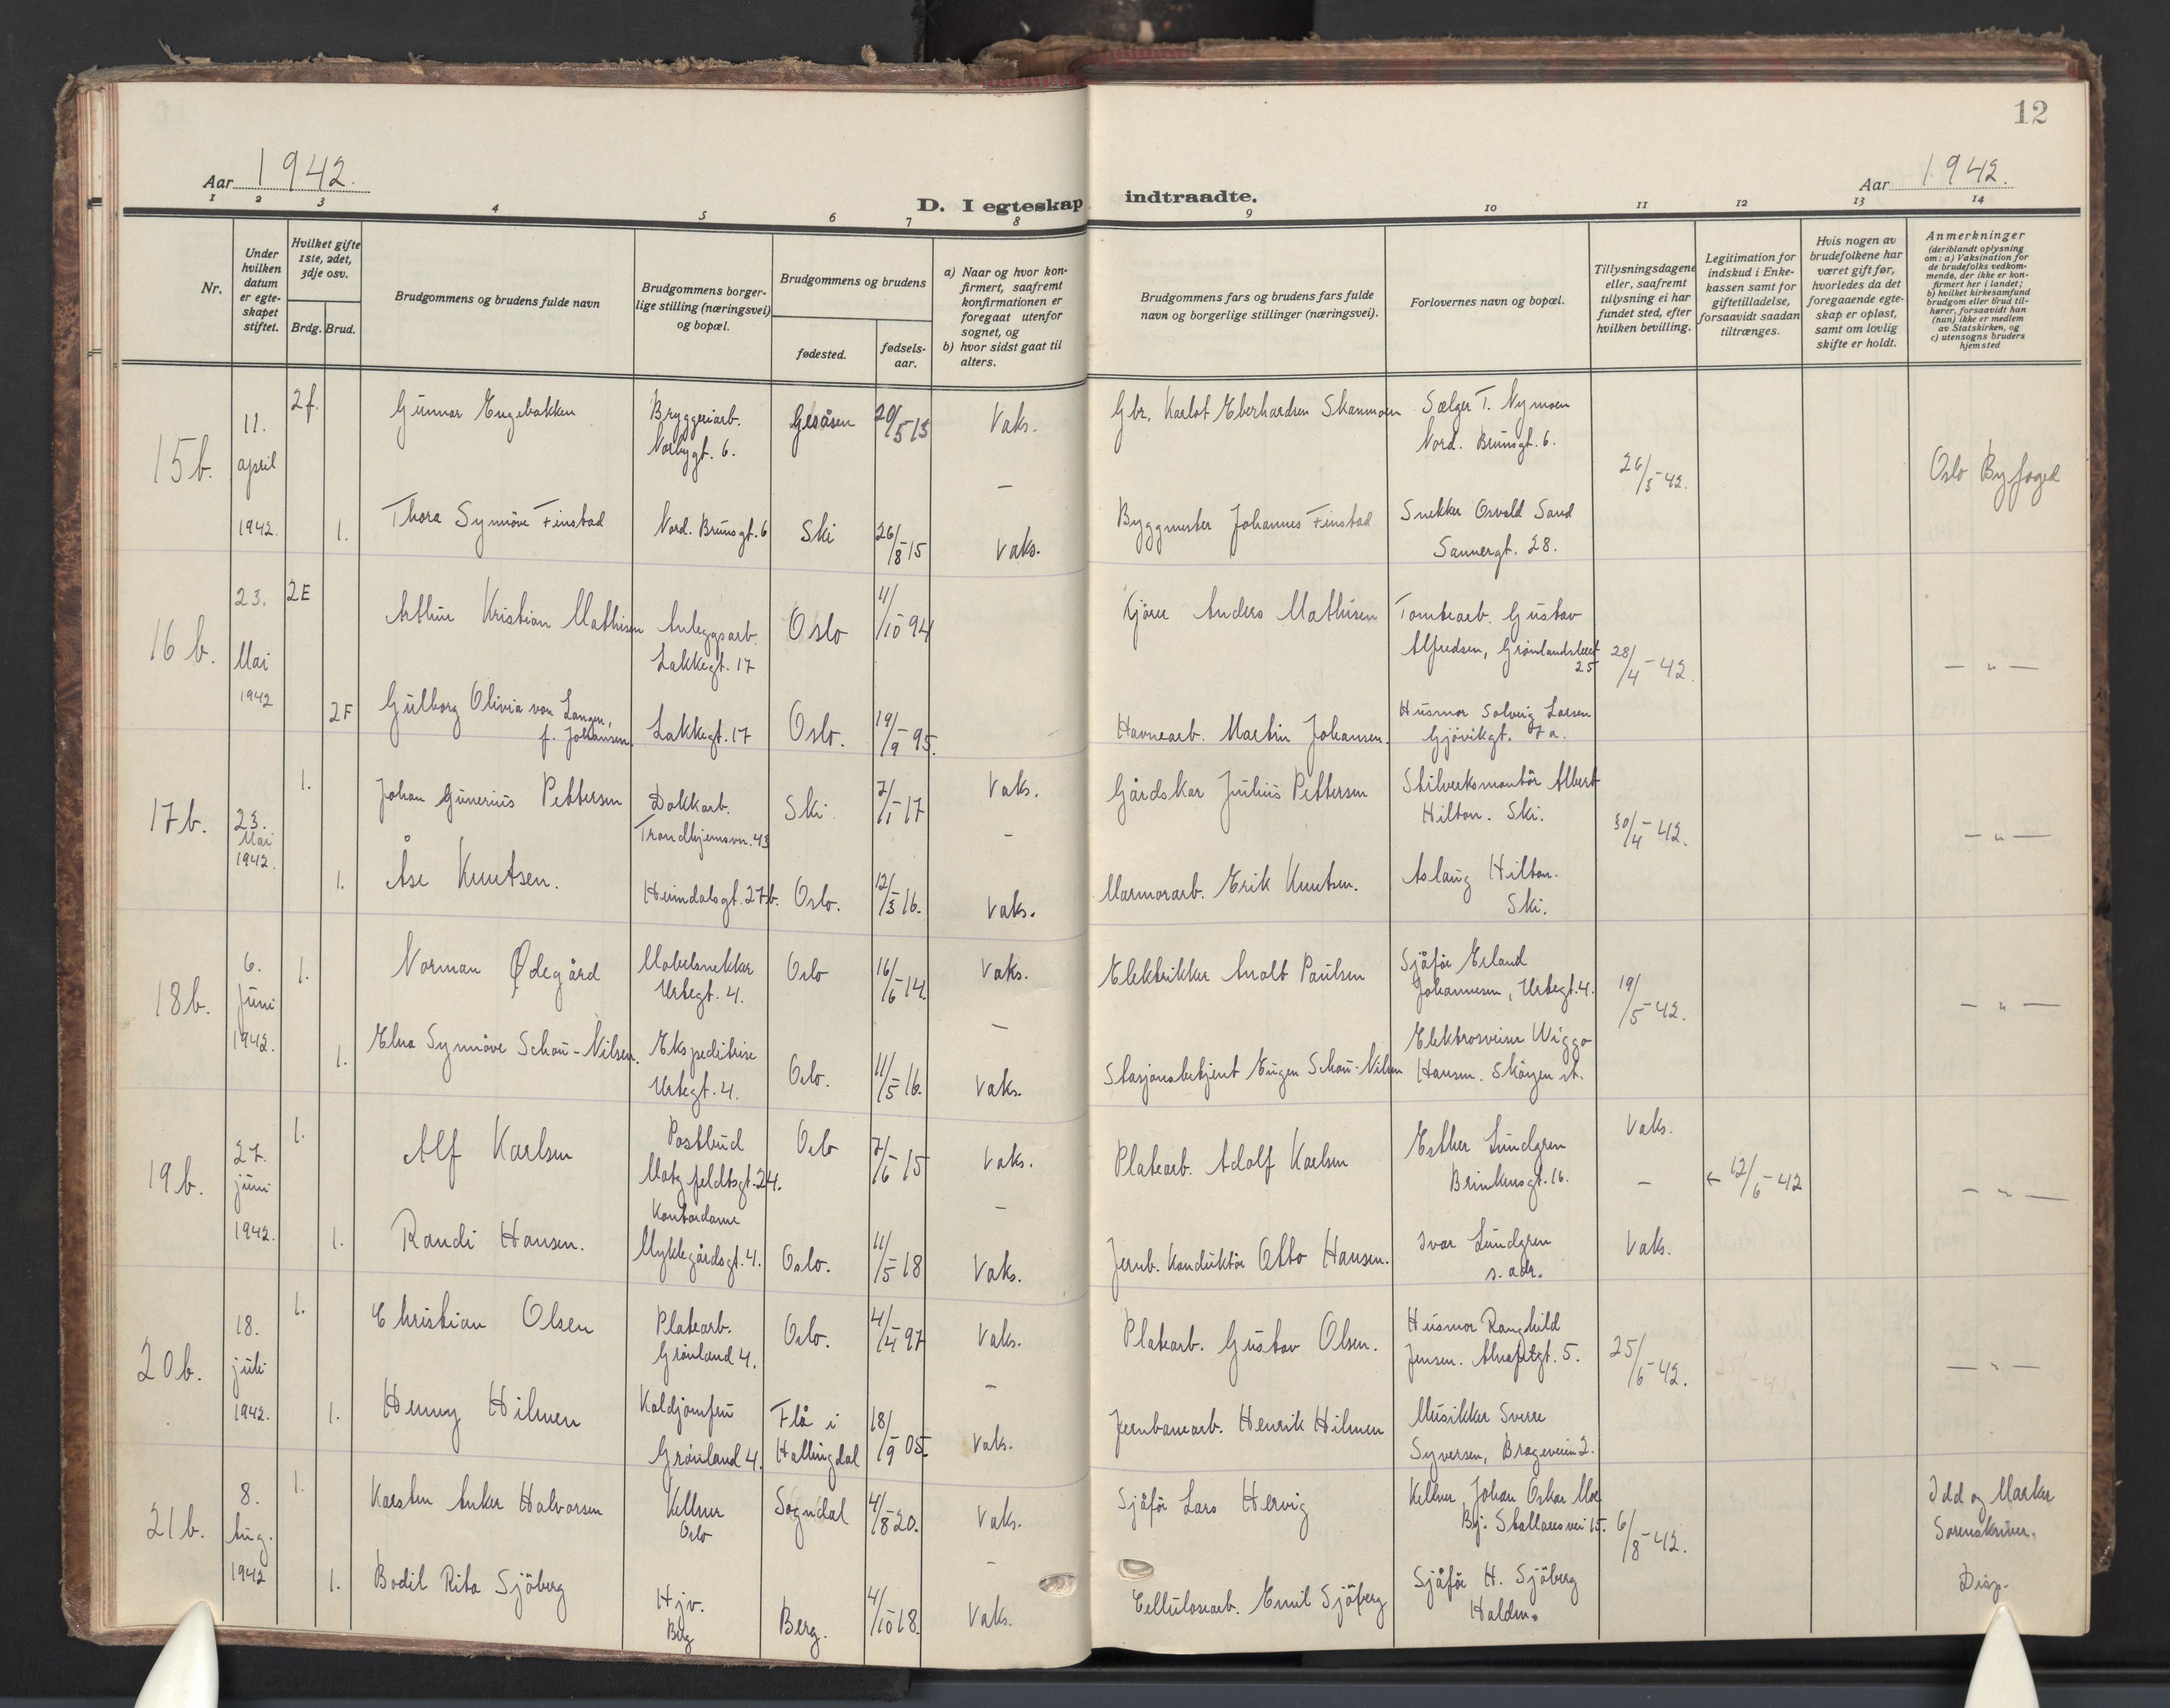 12
Aar 1942.
Aar 1942.
D. I egteskap indtraadte.
1 2 3 4 5 6 7 8 9 10 11 12 13 14
Nr.
Under hvilken datum er egteskapet stiftet.
Hvilket gifte 1ste, 2det, 3dje osv.
Brdg. Brud.
Brudgommens og brudens fulde navn
Brudgommens borgerlige stilling (næringsvei) og bopæl.
Brudgommens og brudens
fødested.
fødselsaar.
a) Naar og hvor konfirmert, saafremt konfirmationen er foregaat utenfor sognet, og
b) hvor sidst gaat til alters.
Brudgommens fars og brudens fars fulde navn og borgerlige stillinger (næringsvei).
Forlovernes navn og bopæl.
Tillysningsdagene eller, saafremt tillysning ei har fundet sted, efter hvilken bevilling.
Legitimation for indskud i Enkekassen samt for giftetilladelse, forsaavidt saadan tiltrænges.
Hvis nogen av brudefolkene har været gift før, hvorledes da det foregaaende egteskap er opløst, samt om lovlig skifte er holdt.
Anmerkninger
(deriblandt oplysning om: a) Vaksination for de brudefolks vedkommende, der ikke er konfirmert her i landet;
b) hvilket kirkesamfund brudgom eller brud tilhører, forsaavidt han (hun) ikke er medlem av Statskirken, og
c) utensogns bruders hjemsted
15b.
11. april 1942.
2f.
Gunnar Engebakken
Bryggeriarb.
Norbygt. 6.
Gråsen
20/5-13
Vaks.
Gbr. Karlot Eberhardsen Skanmoen
Sælger T. Nymoen
Nord. Brunsgt. 6.
26/3-42.
Oslo Byfoged
1.
Thora Synnöve Finstad
Nord. Brunsgt. 6
Ski
26/8-15
Vaks.
Byggmester Johannes Finstad
Snekker Osvald Sand
Sannergt. 28.
16b.
23. Mai 1942
2E
Arthur Kristian Mathisen
Anleggsarb.
Lakkegt. 17
Oslo
4/10-94
Kjörer Anders Mathisen
Tomtearb. Gustav
Alfredsen, Grønlandsleret 25
28/4-42.
— " —
2F
Gulborg Olivia von Langen,
f. Johansen.
Lakkegt. 17
Oslo.
19/9-95.
Havnearb. Martin Johansen.
Husmor Solveig Larsen
Gjövikgt. 7a.
17b.
23. Mai 1942.
1.
Johan Gunerius Pettersen
Dokkarb.
Trondhjemsvn. 43
Ski
7/1-17
Vaks.
Gårdskar Julius Pettersen
Stilverksmontör Albert
Hilton. Ski.
30/4-42.
— " —
1.
Åse Knutsen.
Heimdalsgt. 27b.
Oslo.
12/3-16.
Vaks.
Marmorarb. Erik Knutsen.
Aslaug Hilton.
Ski.
18b.
6. Juni 1942.
1.
Norman Ødegård
Møbelsnekker
Urtegt. 4.
Oslo
16/6-14.
Vaks.
Elektrikker Anolt Paulsen
Sjåför Erland
Johannesen, Urtegt. 4.
19/5-42.
— " —
1.
Elna Synnöve Schau-Nilsen.
Ekspeditrise
Urtegt. 4.
Oslo.
11/5-16.
Vaks.
Stasjonsbetjent Eugen Schau-Nilsen
Elektrosveiser Wiggo
Hansen. Sköyen st.
19b.
27. juni 1942.
1.
Alf Karlsen
Postbud
Motzfeldtsgt. 24.
Oslo
7/6-15
Vaks.
Platearb. Adolf Karlsen
Esther Lundgren
Brinkensgt. 16.
Vaks.
—
← 12/6-42
— " —
1.
Randi Hansen.
Kontordame
Myklegårdsgt. 4.
Oslo.
11/5-18
Vaks.
Jernb. Konduktör Otto Hansen.
Ivar Lundgren
s. adr.
Vaks.
20b.
18. juli 1942.
1.
Christian Olsen
Platearb.
Grönland 4.
Oslo.
4/4-97
Vaks.
Platearb. Gustav Olsen.
Husmor Ranghild
Jensen. Alnafetgt. 5.
25/6-42.
— " —
1.
Henny Hilmen
Koldjomfru
Grönland 4.
Flå i
Hallingdal
18/9-05.
Vaks.
Jernbanearb. Henrik Hilmen
Musikker Sverre
Syversen, Brageveien 2.
21b.
8. Aug. 1942
1.
Karsten Anker Halvorsen
Kellner
Oslo
Sogndal
4/8-20.
Vaks.
Sjåför Lars Hervig
Kellner Johan Oskar Moe
Bj. Stallaresvei 15.
6/8-42.
Idd og Marker
Sorenskriver.
1.
Bodil Rita Sjöberg
Hjv.
Berg
Berg.
4/10-18.
Vaks.
Celluloscarb. Emil Sjöberg
Sjåför H. Sjöberg
Halden.
Disp.